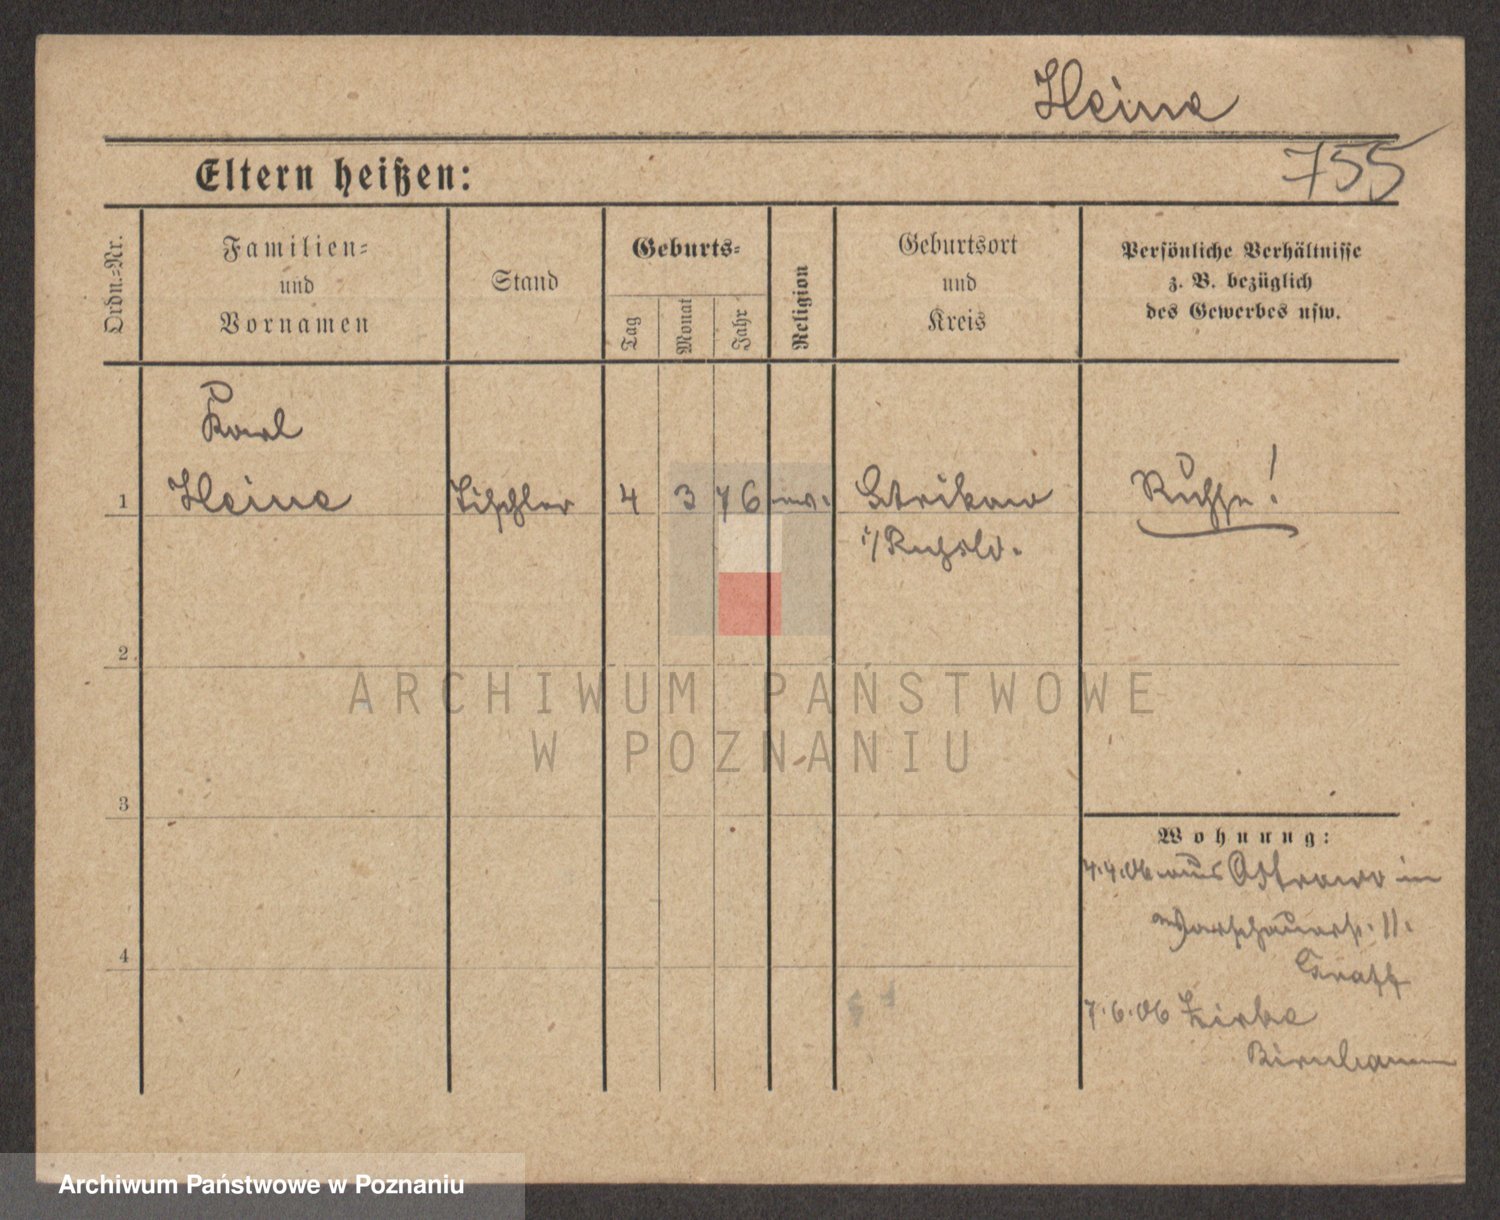 Heine
755
Eltern heißen:
Ordn.=Nr.
Familien=
und
Vornamen
Stand
Geburts=
Tag
Monat
Jahr
Religion
Geburtsort
und
Kreis
Persönliche Verhältnisse
z. B. bezüglich
des Gewerbes usw.
Karl
1 Heine Tischler 4 3 76 ev. Strikow Russe!
i/Russld.
2
3
4
Wohnung:
4.4.06 aus Ostrowo in
Warschauerstr. 11.
7.6.06 Zirke
Birnbaum
ARCHIWUM PAŃSTWOWE
W POZNANIU
Archiwum Państwowe w Poznaniu